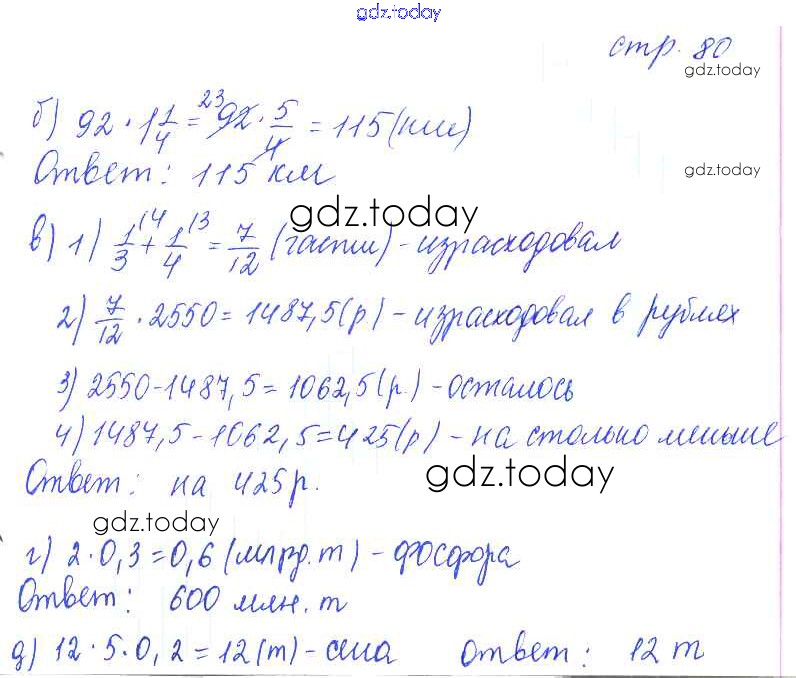 gdz.today
стр. 80
gdz.today
б) 92 · 1 1/4 = 23 92 · 5/4 = 115 (км)
Ответ: 115 км
gdz.today
gdz.today
в) 1) 1/3 \4 + 1/4 \3 = 7/12 (части) - израсходовал
2) 7/12 · 2550 = 1487,5 (р) - израсходовал в рублях
3) 2550 - 1487,5 = 1062,5 (р.) - осталось
4) 1487,5 - 1062,5 = 425 (р) - на столько меньше
Ответ: на 425 р.
gdz.today
gdz.today
г) 2 · 0,3 = 0,6 (млрд. т) - фосфора
Ответ: 600 млн. т
д) 12 · 5 · 0,2 = 12 (т) - сена Ответ: 12 т